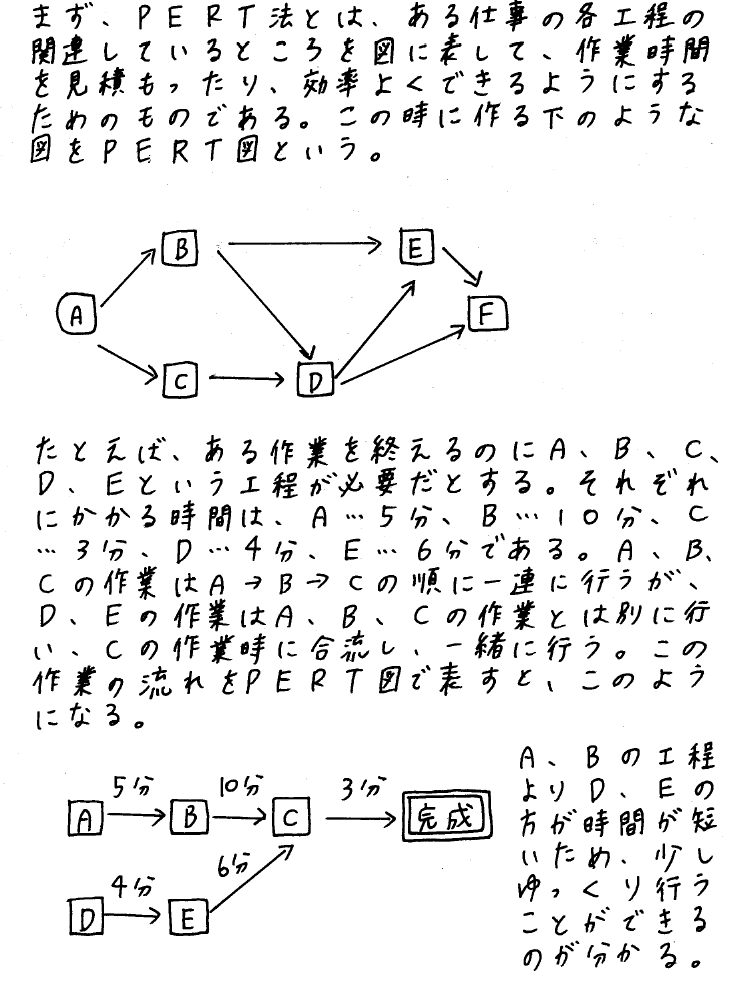 まず、PERT法とは、ある仕事の各工程の
関連しているところを図に表して、作業時間
を見積もったり、効率よくできるようにする
ためのものである。この時に作る下のような
図をPERT図という。
B
E
A
F
C
D
たとえば、ある作業を終えるのにA、B、C、
D、Eという工程が必要だとする。それぞれ
にかかる時間は、A…5分、B…10分、C
…3分、D…4分、E…6分である。A、B、
Cの作業はA→B→Cの順に一連に行うが、
D、Eの作業はA、B、Cの作業とは別に行
い、Cの作業時に合流し、一緒に行う。この
作業の流れをPERT図で表すと、このよう
になる。
5分 10分 3分
A B C 完成
4分 6分
D E
A、Bの工程
よりD、Eの
方が時間が短
いため、少し
ゆっくり行う
ことができる
のが分かる。